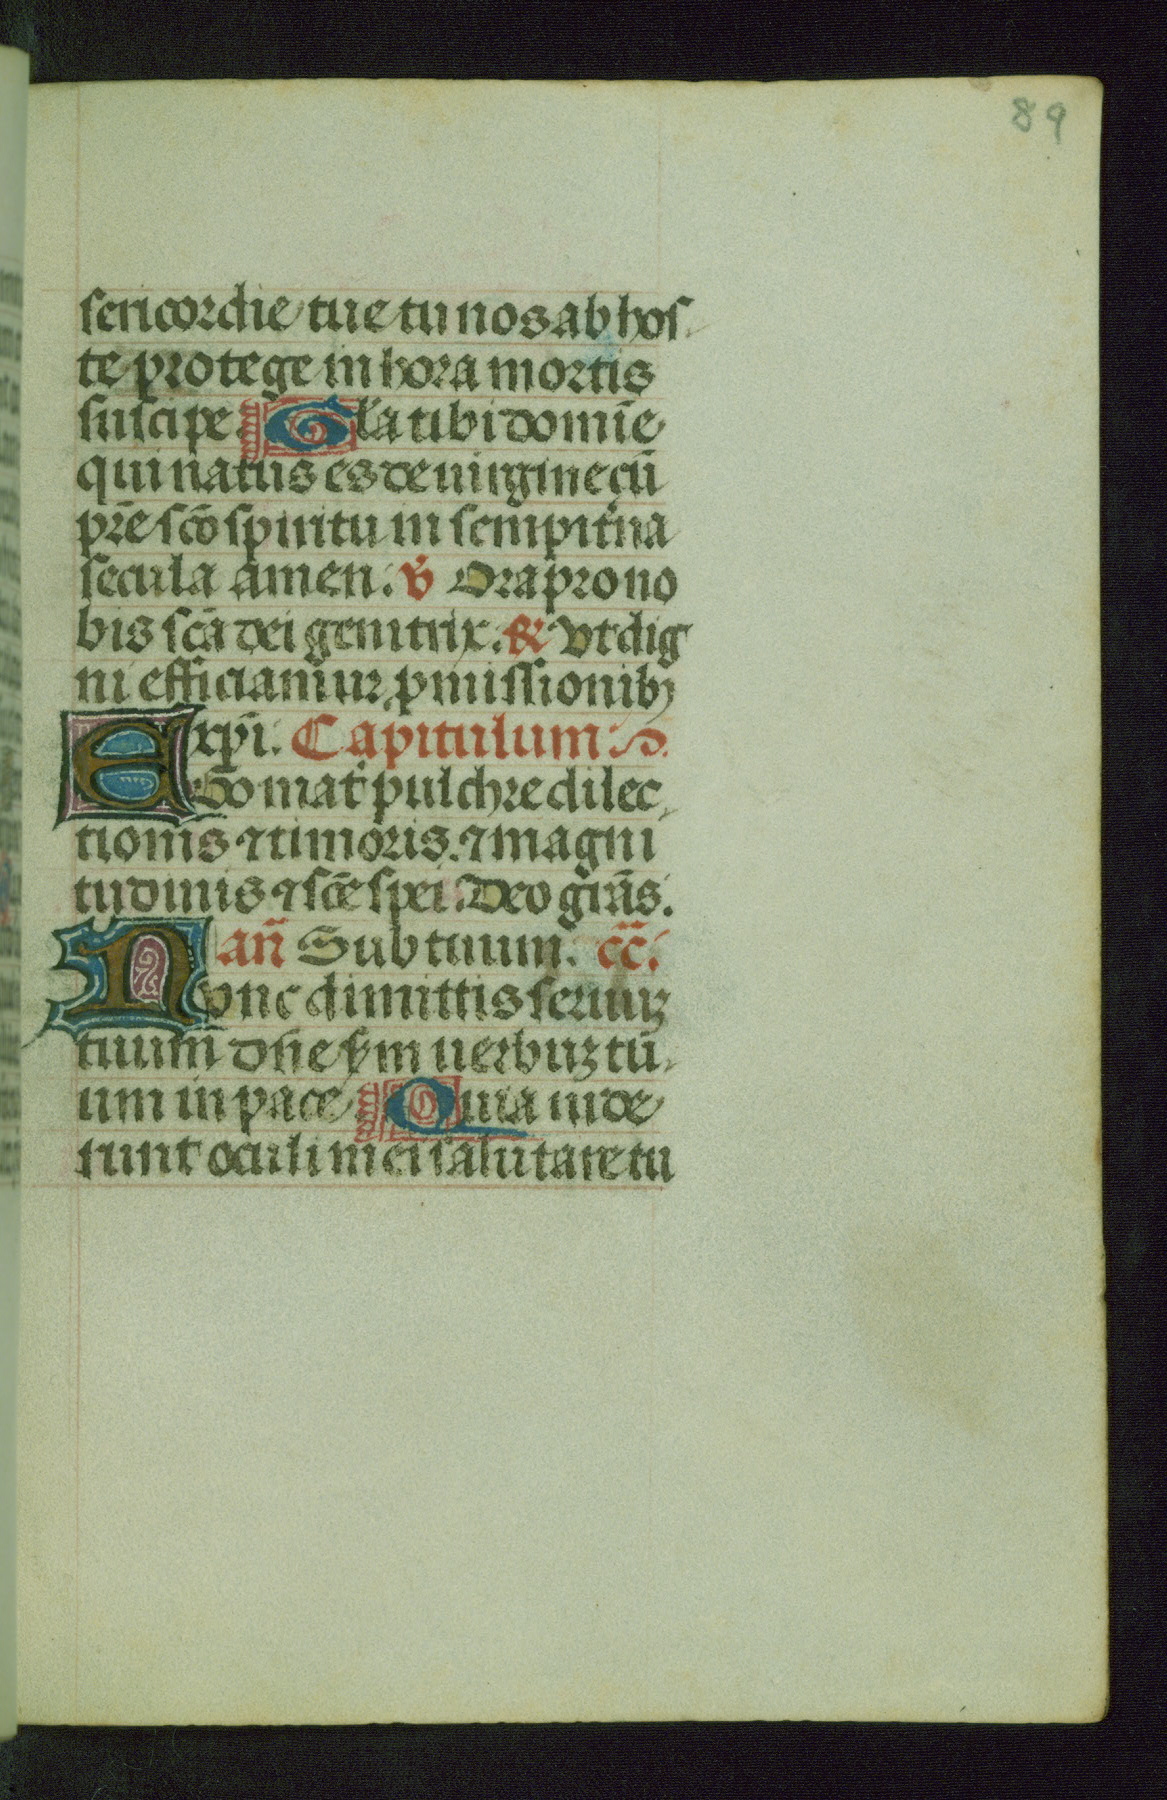 89
sericordie tue tu nos ab hos
te protege in hora mortis
suscipe. Gl̃a tibi domĩe
qui natus es de uirgine cũ
pr̃e sc̃o spiritu in sempit̃na
secula amen. ℣ Ora pro no
bis sc̃a dei genitrix. ℟ Vt dig
ni efficiamur p̱missionibꝫ
xp̃i. Capitulum:
Ego mat̃ pulchre dilec
tionis ⁊ timoris. ⁊ magni
tudinis ⁊ sc̃e spei. Deo gr̃as.
añ Sub tuum. cc̃.
Nunc dimittis seruuꝫ
tuum dñe sm̃ uerbuꝫ tũ
um in pace. Quia uide
runt oculi mei salutare tu